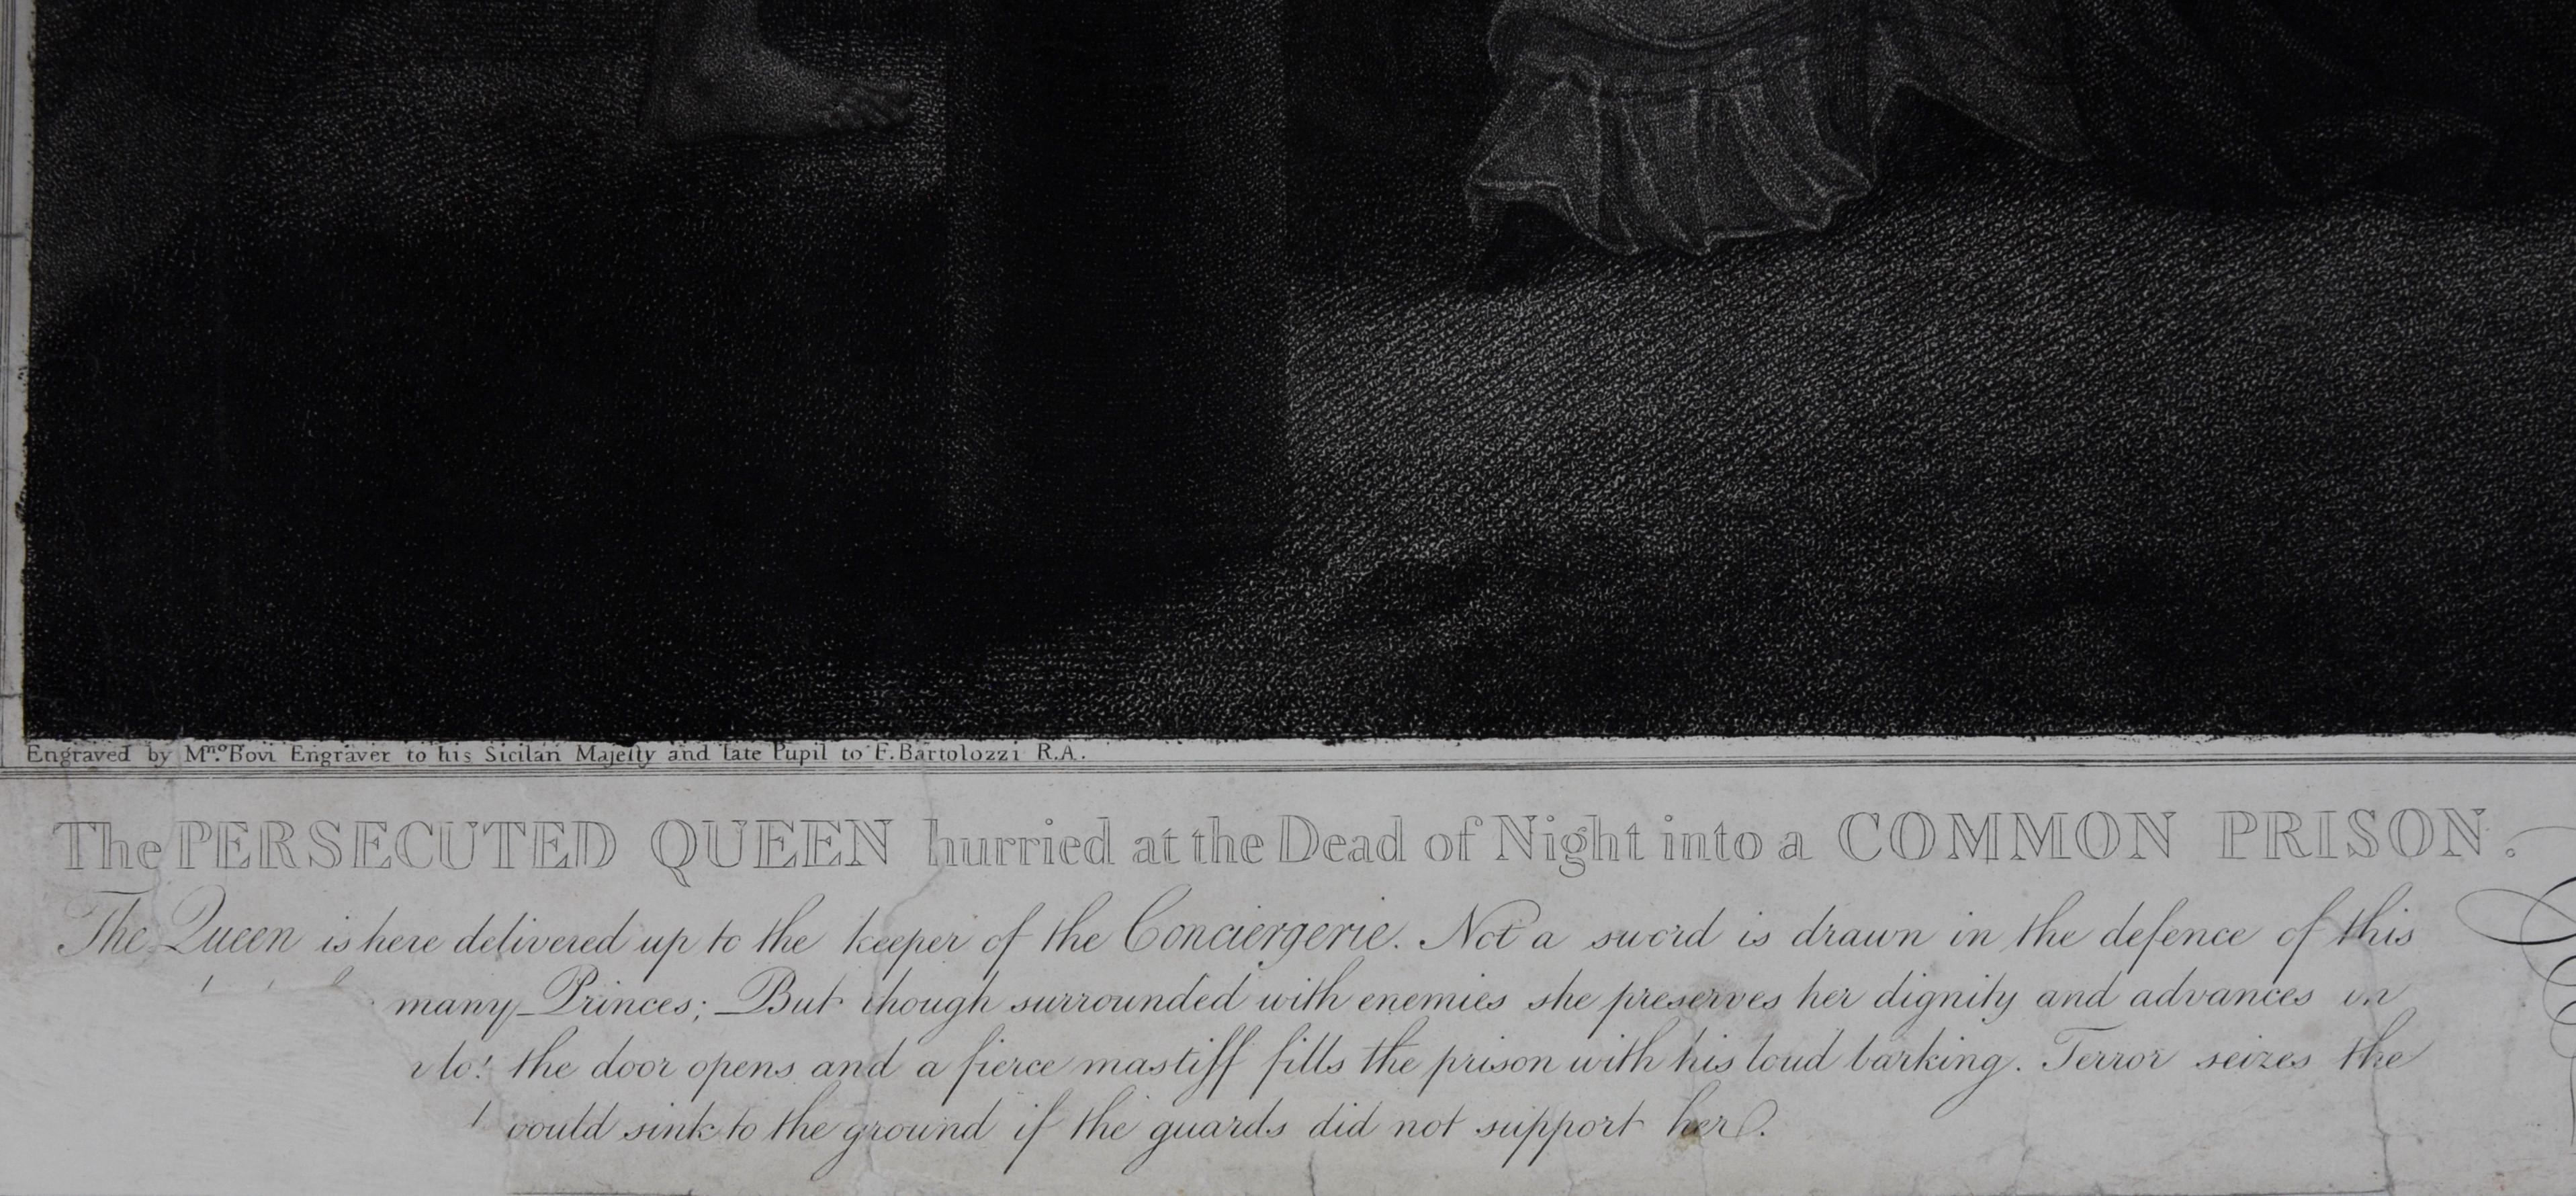 Engraved by Mno. Bovi Engraver to his Sicilan Majesty and late Pupil to F. Bartolozzi R.A.
The PERSECUTED QUEEN hurried at the Dead of Night into a COMMON PRISON.
The Queen is here delivered up to the keeper of the Conciergerie. Not a sword is drawn in the defence of this
many Princes; But though surrounded with enemies she preserves her dignity and advances in
lo! the door opens and a fierce mastiff fills the prison with his loud barking. Terror seizes the
would sink to the ground if the guards did not support her.